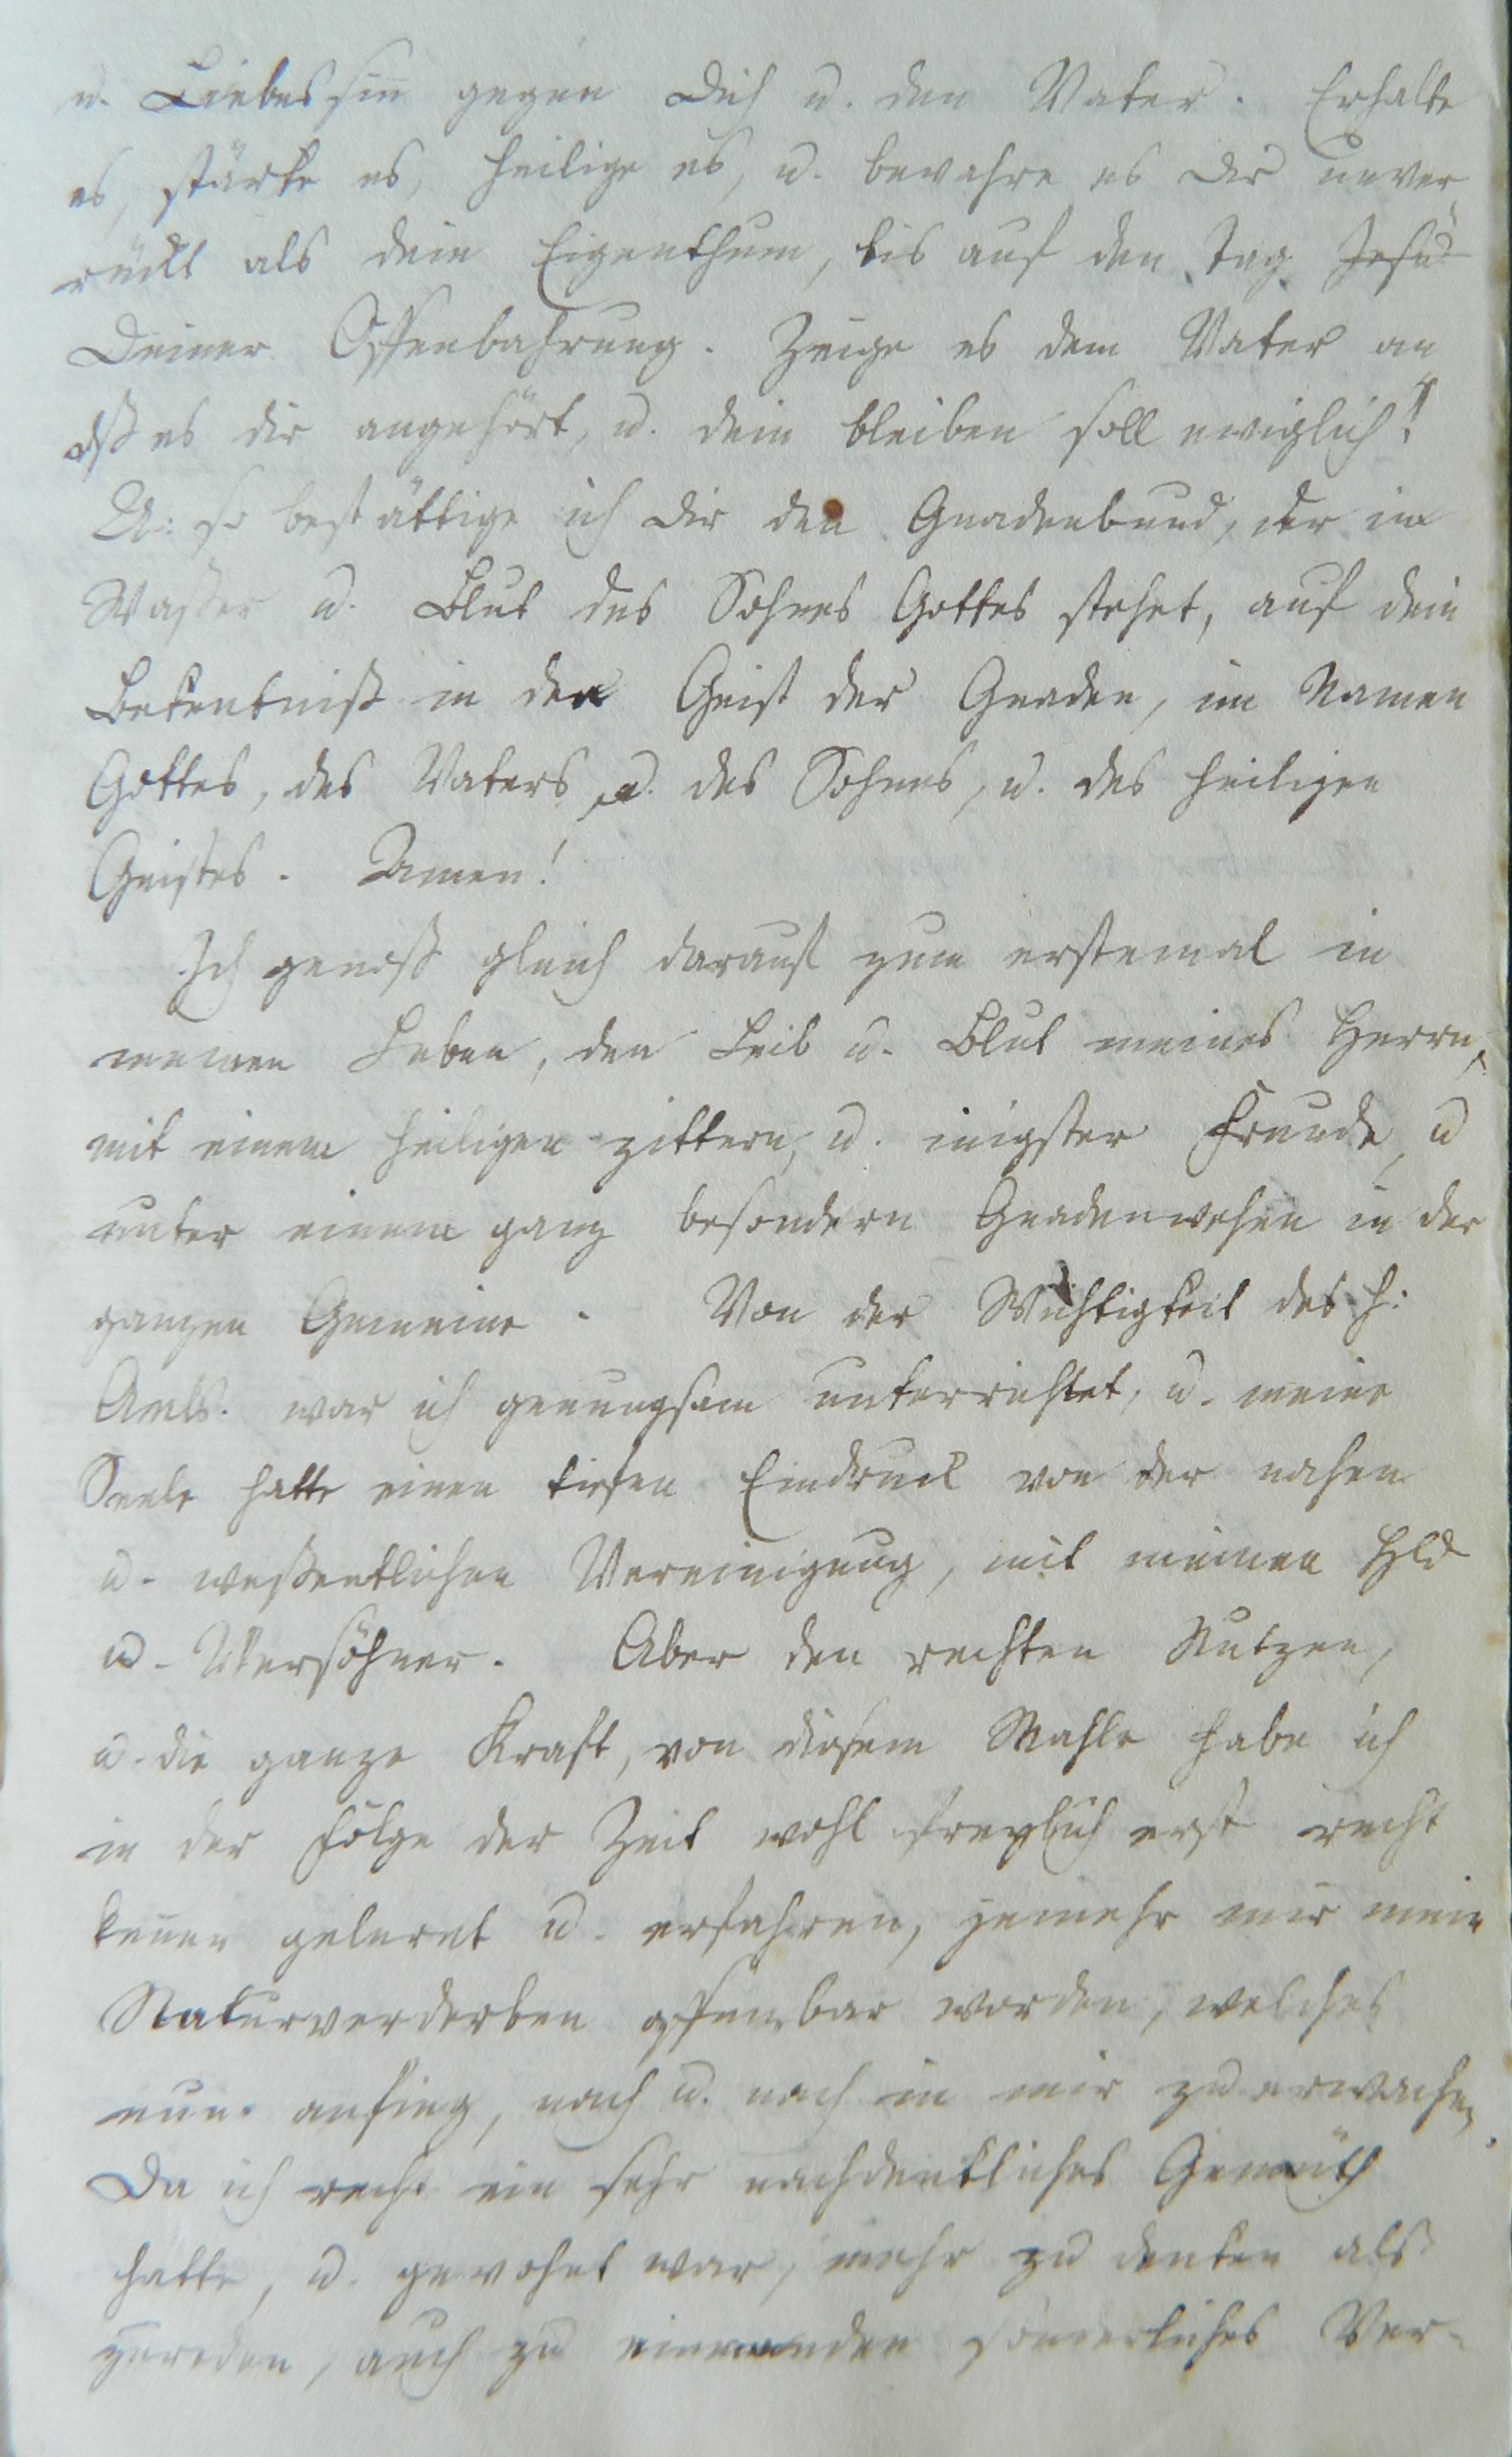 u. Liebessin̄ gegen Dich u. den Vater. Erhalte
es, stärke es, heilige es, u. bewahre es Dir unver-
rückt als dein Eigenthum, bis auf den Tag Jesu
Deiner Offenbahrung. Zeige es dem Vater an
dß es dir angehört, u. dein bleiben soll ewiglich!
U: so bestättige ich dir den Gnadenbund, der im
Waßer u. Blut des Sohnes Gottes stehet, auf dein
Bekentniß in den Geist der Gnaden, im Namen
Gottes, des Vaters, u. des Sohnes, u. des heiligen
Geistes. Amen!
Ich genoß gleich darauf zum erstemal in
meinen Leben, den Leib u. Blut meines Herrn,
mit einem heiligen zittern, u. inigster Freude, u
unter einem ganz besondern Gnadenwehen in der
ganzen Gemeine. Von der Wichtigkeit des h:
war ich genungsam unterrichtet, u. meine
Seele hatte einen tiefen Eindruck von der nahen
u. weßentlichen Vereinigung, mit meinen Hld
u. Versöhner. Aber den rechten Nutzen,
u. die ganze Kraft, von diesem Mahle habe ich
in der Folge der Zeit wohl freylich erst recht
ken̄en gelernt u. erfahren, jemehr mir mein
Naturverderben offenbar worden, welches
nun anfing, nach u. nach in mir zu erwachen.
Da ich recht ein sehr nachdenkliches Gemüth
hatte, u. gewohnt war, mehr zu denken als
zureden, auch zu niemanden sonderliches Ver-